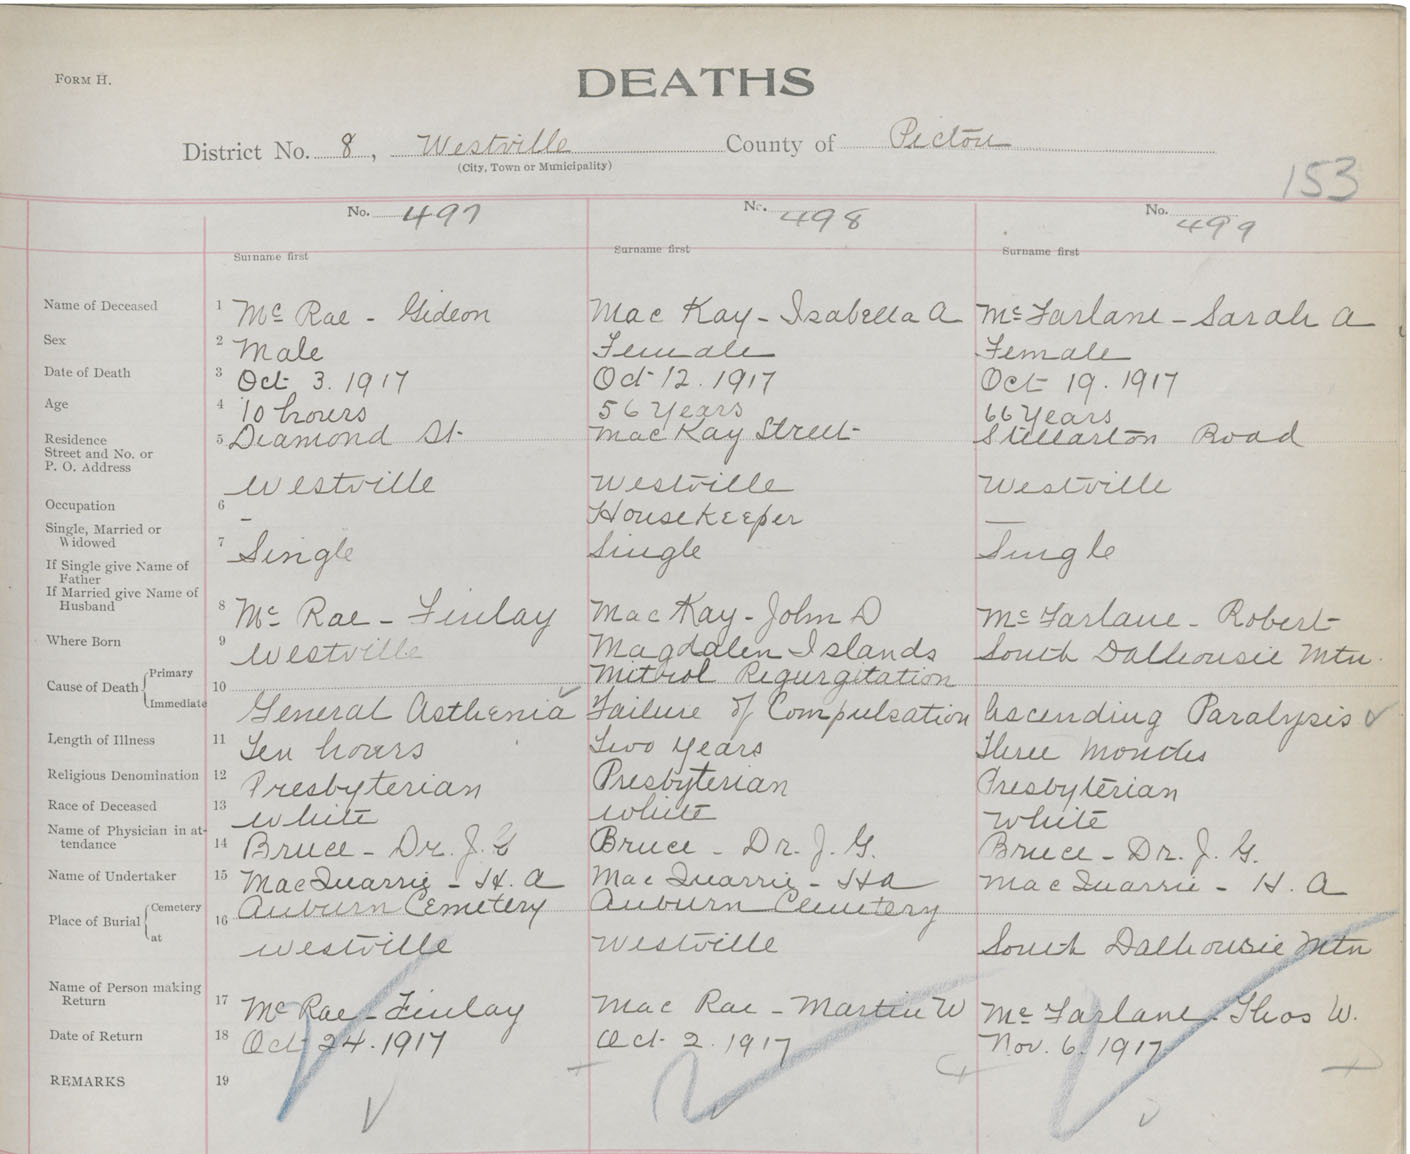 FORM H.
DEATHS
District No. 8, Westville County of Pictou
(City, Town or Municipality)
153
No. 497 No. 498 No. 499
Surname first Surname first Surname first
Name of Deceased 1 Mc Rae - Gideon Mac Kay - Isabella A Mc Farlane - Sarah A
Sex 2 Male Female Female
Date of Death 3 Oct 3. 1917 Oct 12. 1917 Oct 19. 1917
Age 4 10 hours 56 Years 66 Years
Residence 5 Diamond St. MacKay Street Stellarton Road
Street and No. or
P. O. Address Westville Westville Westville
Occupation 6 - Housekeeper —
Single, Married or
Widowed 7 Single Single Single
If Single give Name of
Father
If Married give Name of
Husband 8 Mc Rae - Finlay MacKay - John D Mc Farlane - Robert
Where Born 9 Westville Magdalen Islands South Dalhousie Mtn.
Cause of Death Primary 10 Mitrol Regurgitation
Immediate General Asthenia Failure of Compulsation Ascending Paralysis
Length of Illness 11 Ten hours Two Years Three Months
Religious Denomination 12 Presbyterian Presbyterian Presbyterian
Race of Deceased 13 White White White
Name of Physician in at-
tendance 14 Bruce - Dr. J. G Bruce - Dr. J. G. Bruce - Dr. J. G.
Name of Undertaker 15 MacQuarrie - H. A MacQuarrie - H A MacQuarrie - H. A
Place of Burial Cemetery 16 Auburn Cemetery Auburn Cemetery
at Westville Westville South Dalhousie Mtn
Name of Person making
Return 17 Mc Rae - Finlay Mac Rae - Martin W Mc Farlane - Thos W.
Date of Return 18 Oct 24. 1917 Oct. 2. 1917 Nov. 6. 1917
REMARKS 19